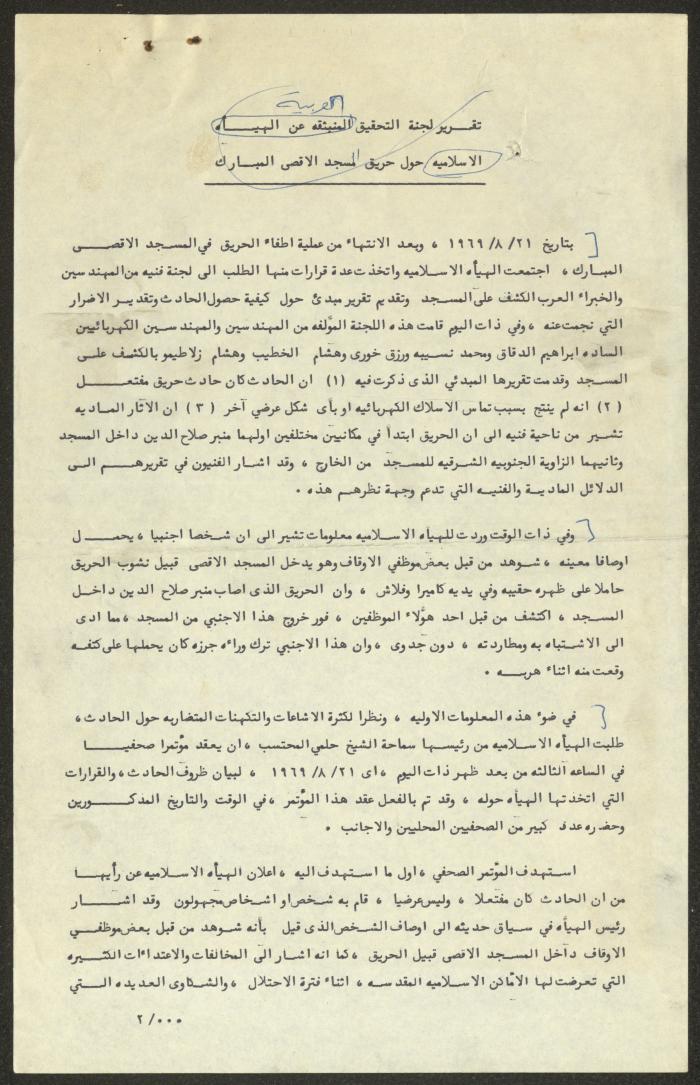 العربية
تقرير لجنة التحقيق المنبثقه عن الهيأه
الاسلاميه حول حريق المسجد الاقصى المبارك
بتاريخ ٢١/ ٨/ ١٩٦٩ ، وبعد الانتهاء من عملية اطفاء الحريق في المسجد الاقصى
المبارك ، اجتمعت الهيأه الاسلاميه واتخذت عدة قرارات منها الطلب الى لجنة فنيه من المهندسين
والخبراء العرب الكشف على المسجد وتقديم تقرير مبدئ حول كيفية حصول الحادث وتقدير الاضرار
التي نجمت عنه ، وفي ذات اليوم قامت هذه اللجنة المؤلفه من المهندسين والمهندسين الكهربائيين
الساده ابراهيم الدقاق ومحمد نسيبه ورزق خورى وهشام الخطيب وهشام زلاطيمو بالكشف على
المسجد وقدمت تقريرها المبدئي الذى ذكرت فيه (١) ان الحادث كان حادث حريق مفتعل
(٢) انه لم ينتج بسبب تماس الاسلاك الكهربائيه او بأى شكل عرضي آخر (٣) ان الآثار الماديه
تشير من ناحية فنيه الى ان الحريق ابتدأ في مكانيين مختلفين اولهما منبر صلاح الدين داخل المسجد
وثانيهما الزاوية الجنوبيه الشرقيه للمسجد من الخارج ، وقد اشار الفنيون في تقريرهم الى
الدلائل المادية والفنيه التي تدعم وجهة نظرهم هذه .
وفي ذات الوقت وردت للهيأه الاسلاميه معلومات تشير الى ان شخصا اجنبيا ، يحمل
اوصافا معينه ، شوهد من قبل بعض موظفي الاوقاف وهو يدخل المسجد الاقصى قبيل نشوب الحريق
حاملا على ظهره حقيبه وفي يديه كاميرا وفلاش ، وان الحريق الذى اصاب منبر صلاح الدين داخل
المسجد ، اكتشف من قبل احد هؤلاء الموظفين ، فور خروج هذا الاجنبي من المسجد ، مما ادى
الى الاشتباه به ومطاردته ، دون جدوى ، وان هذا الاجنبي ترك وراءه جرزه كان يحملها على كتفه
وقعت منه اثناء هربه .
في ضوء هذه المعلومات الاوليه ، ونظرا لكثرة الاشاعات والتكهنات المتضاربه حول الحادث ،
طلبت الهيأه الاسلاميه من رئيسها سماحة الشيخ حلمي المحتسب ، ان يعقد مؤتمرا صحفيا
في الساعه الثالثه من بعد ظهر ذات اليوم ، اى ٢١/ ٨/ ١٩٦٩ ، لبيان ظروف الحادث ، والقرارات
التي اتخذتها الهيأه حوله ، وقد تم بالفعل عقد هذا المؤتمر ، في الوقت والتاريخ المذكورين
وحضره عدد كبير من الصحفيين المحليين والاجانب .
استهدف المؤتمر الصحفي ، اول ما استهدف اليه ، اعلان الهيأه الاسلاميه عن رأيها
من ان الحادث كان مفتعلا ، وليس عرضيا ، قام به شخص او اشخاص مجهولون وقد اشار
رئيس الهيأه في سياق حديثه الى اوصاف الشخص الذى قيل بأنه شوهد من قبل بعض موظفي
الاوقاف داخل المسجد الاقصى قبيل الحريق ، كما انه اشار الى المخالفات والاعتداءات الكثيره
التي تعرضت لها الأماكن الاسلاميه المقدسه ، اثناء فترة الاحتلال ، والشكاوى العديده التي
٢/٠٠٠